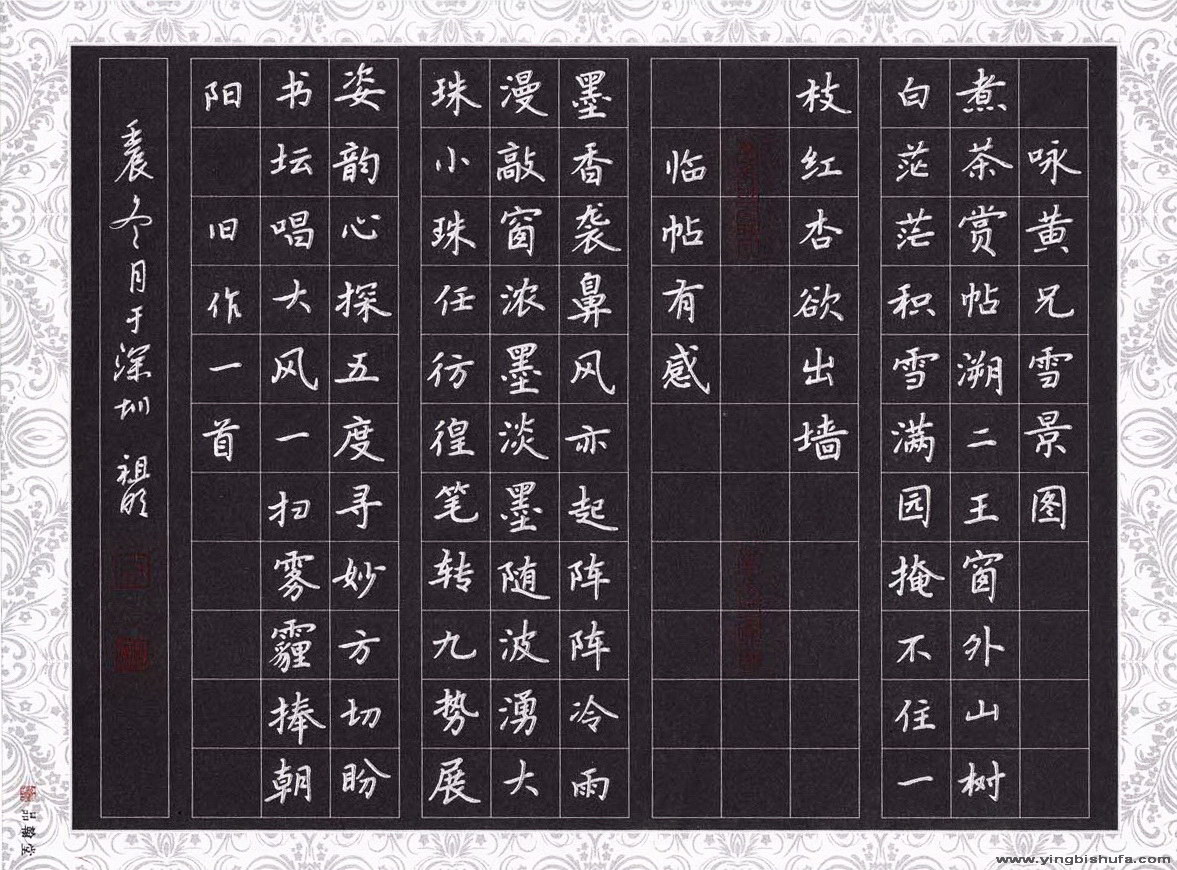 咏黄兄雪景图
煮茶赏帖溯二王窗外山树
白茫茫积雪满园掩不住一
枝红杏欲出墙
临帖有感
墨香袭鼻风亦起阵阵冷雨
漫敲窗浓墨淡墨随波湧大
珠小珠任彷徨笔转九势展
姿韵心探五度寻妙方切盼
书坛唱大风一扫雾霾捧朝
阳 旧作一首
冬月于深圳 祖明
品翰堂
www.yingbishufa.com